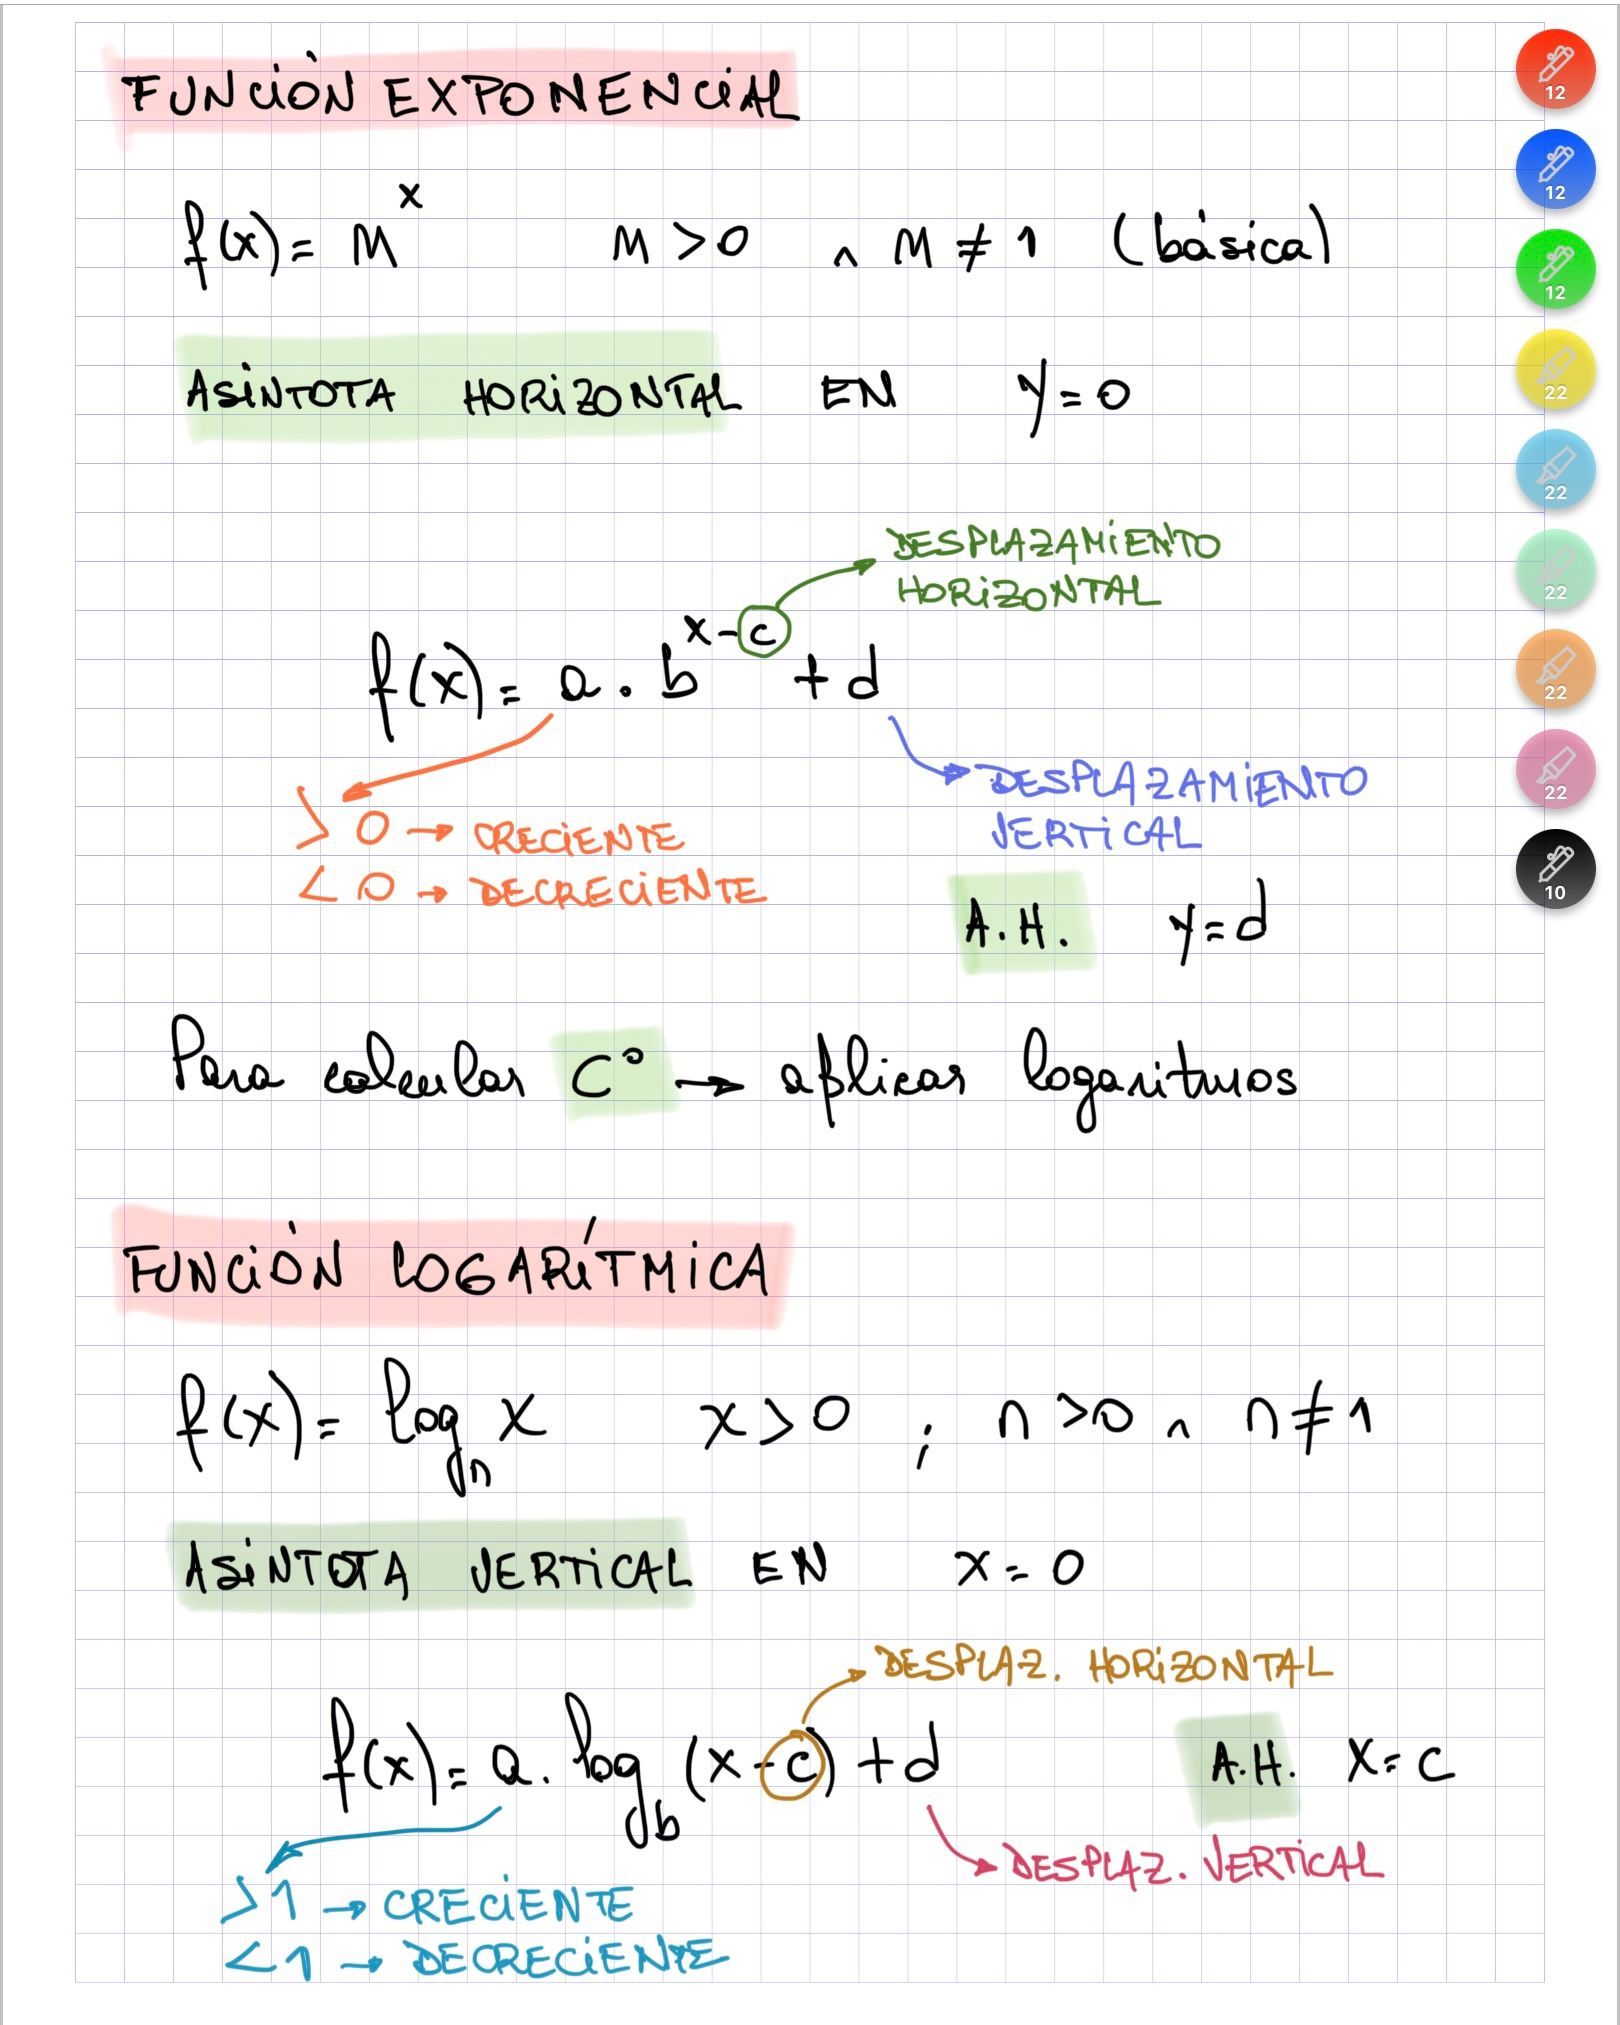 FUNCIÓN EXPONENCIAL
f(x) = m^x m > 0 ∧ m ≠ 1 (básica)
ASINTOTA HORIZONTAL EN y = 0
DESPLAZAMIENTO
HORIZONTAL
f(x) = a . b^(x-c) + d
DESPLAZAMIENTO
VERTICAL
> 0 → CRECIENTE
< 0 → DECRECIENTE
A.H. y = d
Para calcular C° → aplicar logaritmos
FUNCIÓN LOGARÍTMICA
f(x) = log_n x x > 0 ; n > 0 ∧ n ≠ 1
ASINTOTA VERTICAL EN x = 0
DESPLAZ. HORIZONTAL
f(x) = a . log_b (x - c) + d A.H. X = C
DESPLAZ. VERTICAL
> 1 → CRECIENTE
< 1 → DECRECIENTE
12
12
12
22
22
22
22
22
10